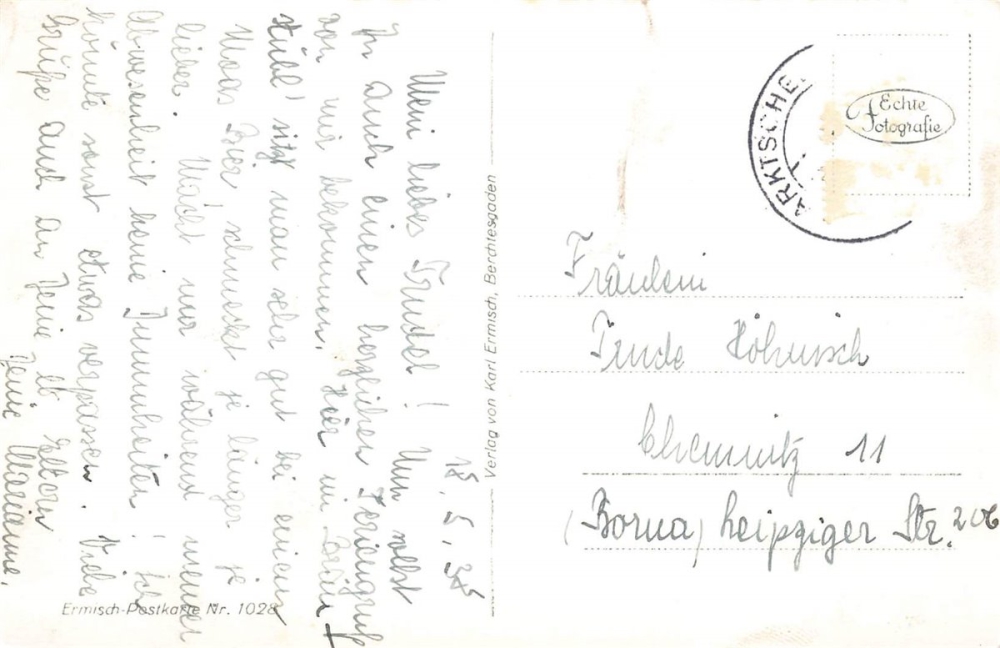 18. 5. 35
Mein liebes Trudel! Nun sollst
du auch einen herzlichen Feriengruß
von mir bekommen. Hier im Bräu-
stübl sitzt man sehr gut bei einem
Maas Bier, schmeckt je länger je
lieber. Macht nur während meiner
Abwesenheit keine Dummheiten! Ich
könnte sonst etwas verpassen. Viele
Grüße auch an Deine lb Eltern
Deine Marianne.
Ermisch-Postkarte Nr. 1028
Verlag von Karl Ermisch, Berchtesgaden
ARKTSCHE
Echte
Fotografie
Fräulein
Trude Höhnisch
Chemnitz 11
(Borna) Leipziger Str. 206